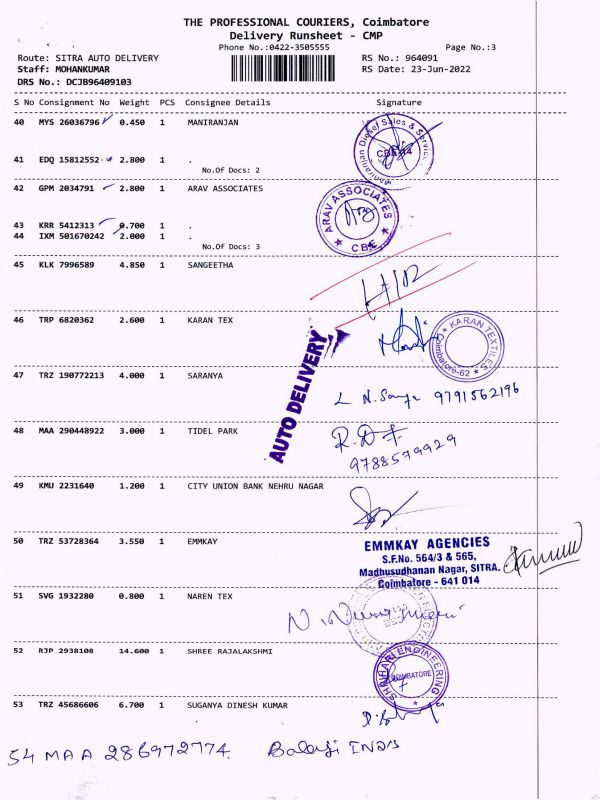 THE PROFESSIONAL COURIERS, Coimbatore
Delivery Runsheet - CMP
Phone No.:0422-3505555 Page No.:3
Route: SITRA AUTO DELIVERY RS No.: 964091
Staff: MOHANKUMAR RS Date: 23-Jun-2022
DRS No.: DCJB96409103
S No Consignment No Weight PCS Consignee Details Signature
40 MYS 26036796 0.450 1 MANIRANJAN
Diesel Sales & Service
41 EDQ 15812552 2.800 1 .
No.Of Docs: 2
42 GPM 2034791 2.800 1 ARAV ASSOCIATES
ARAV ASSOCIATES
CBE
43 KRR 5412313 0.700 1 .
44 IXM 501670242 2.000 1 .
No.Of Docs: 3
45 KLK 7996589 4.850 1 SANGEETHA
46 TRP 6820362 2.600 1 KARAN TEX
KARAN TEXTILES
Coimbatore-62
AUTO DELIVERY
47 TRZ 190772213 4.000 1 SARANYA
9791562196
48 MAA 290448922 3.000 1 TIDEL PARK
9788579929
49 KMU 2231640 1.200 1 CITY UNION BANK NEHRU NAGAR
50 TRZ 53728364 3.550 1 EMMKAY
EMMKAY AGENCIES
S.F.No. 564/3 & 565,
Madhusudhanan Nagar, SITRA.
Coimbatore - 641 014
51 SVG 1932280 0.800 1 NAREN TEX
52 RJP 2938108 14.600 1 SHREE RAJALAKSHMI
SHRIHARI ENGINEERING
COIMBATORE
53 TRZ 45686606 6.700 1 SUGANYA DINESH KUMAR
54 MAA 286972774. Balaji INDS